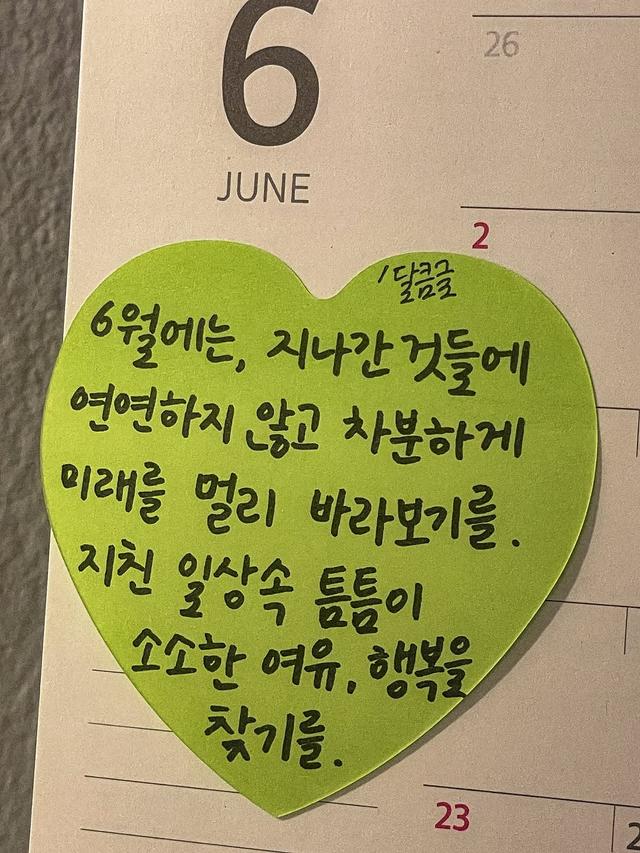 6
JUNE
26
2
/달콤글
6월에는, 지나간 것들에
연연하지 않고 차분하게
미래를 멀리 바라보기를.
지친 일상속 틈틈이
소소한 여유, 행복을
찾기를.
23
2